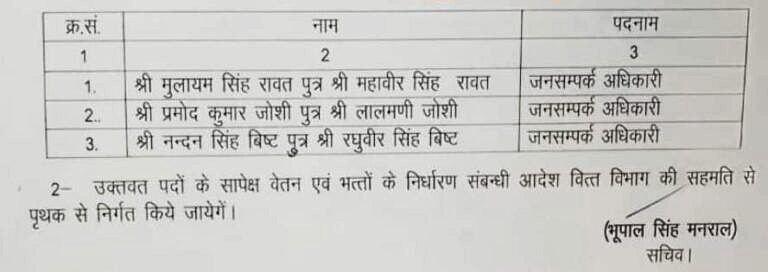 क्र.सं. नाम पदनाम
1 2 3
1. श्री मुलायम सिंह रावत पुत्र श्री महावीर सिंह रावत जनसम्पर्क अधिकारी
2.. श्री प्रमोद कुमार जोशी पुत्र श्री लालमणी जोशी जनसम्पर्क अधिकारी
3. श्री नन्दन सिंह बिष्ट पुत्र श्री रघुवीर सिंह बिष्ट जनसम्पर्क अधिकारी
2– उक्तवत पदों के सापेक्ष वेतन एवं भत्तों के निर्धारण संबन्धी आदेश वित्त विभाग की सहमति से
पृथक से निर्गत किये जायेगें।
(भूपाल सिंह मनराल)
सचिव।